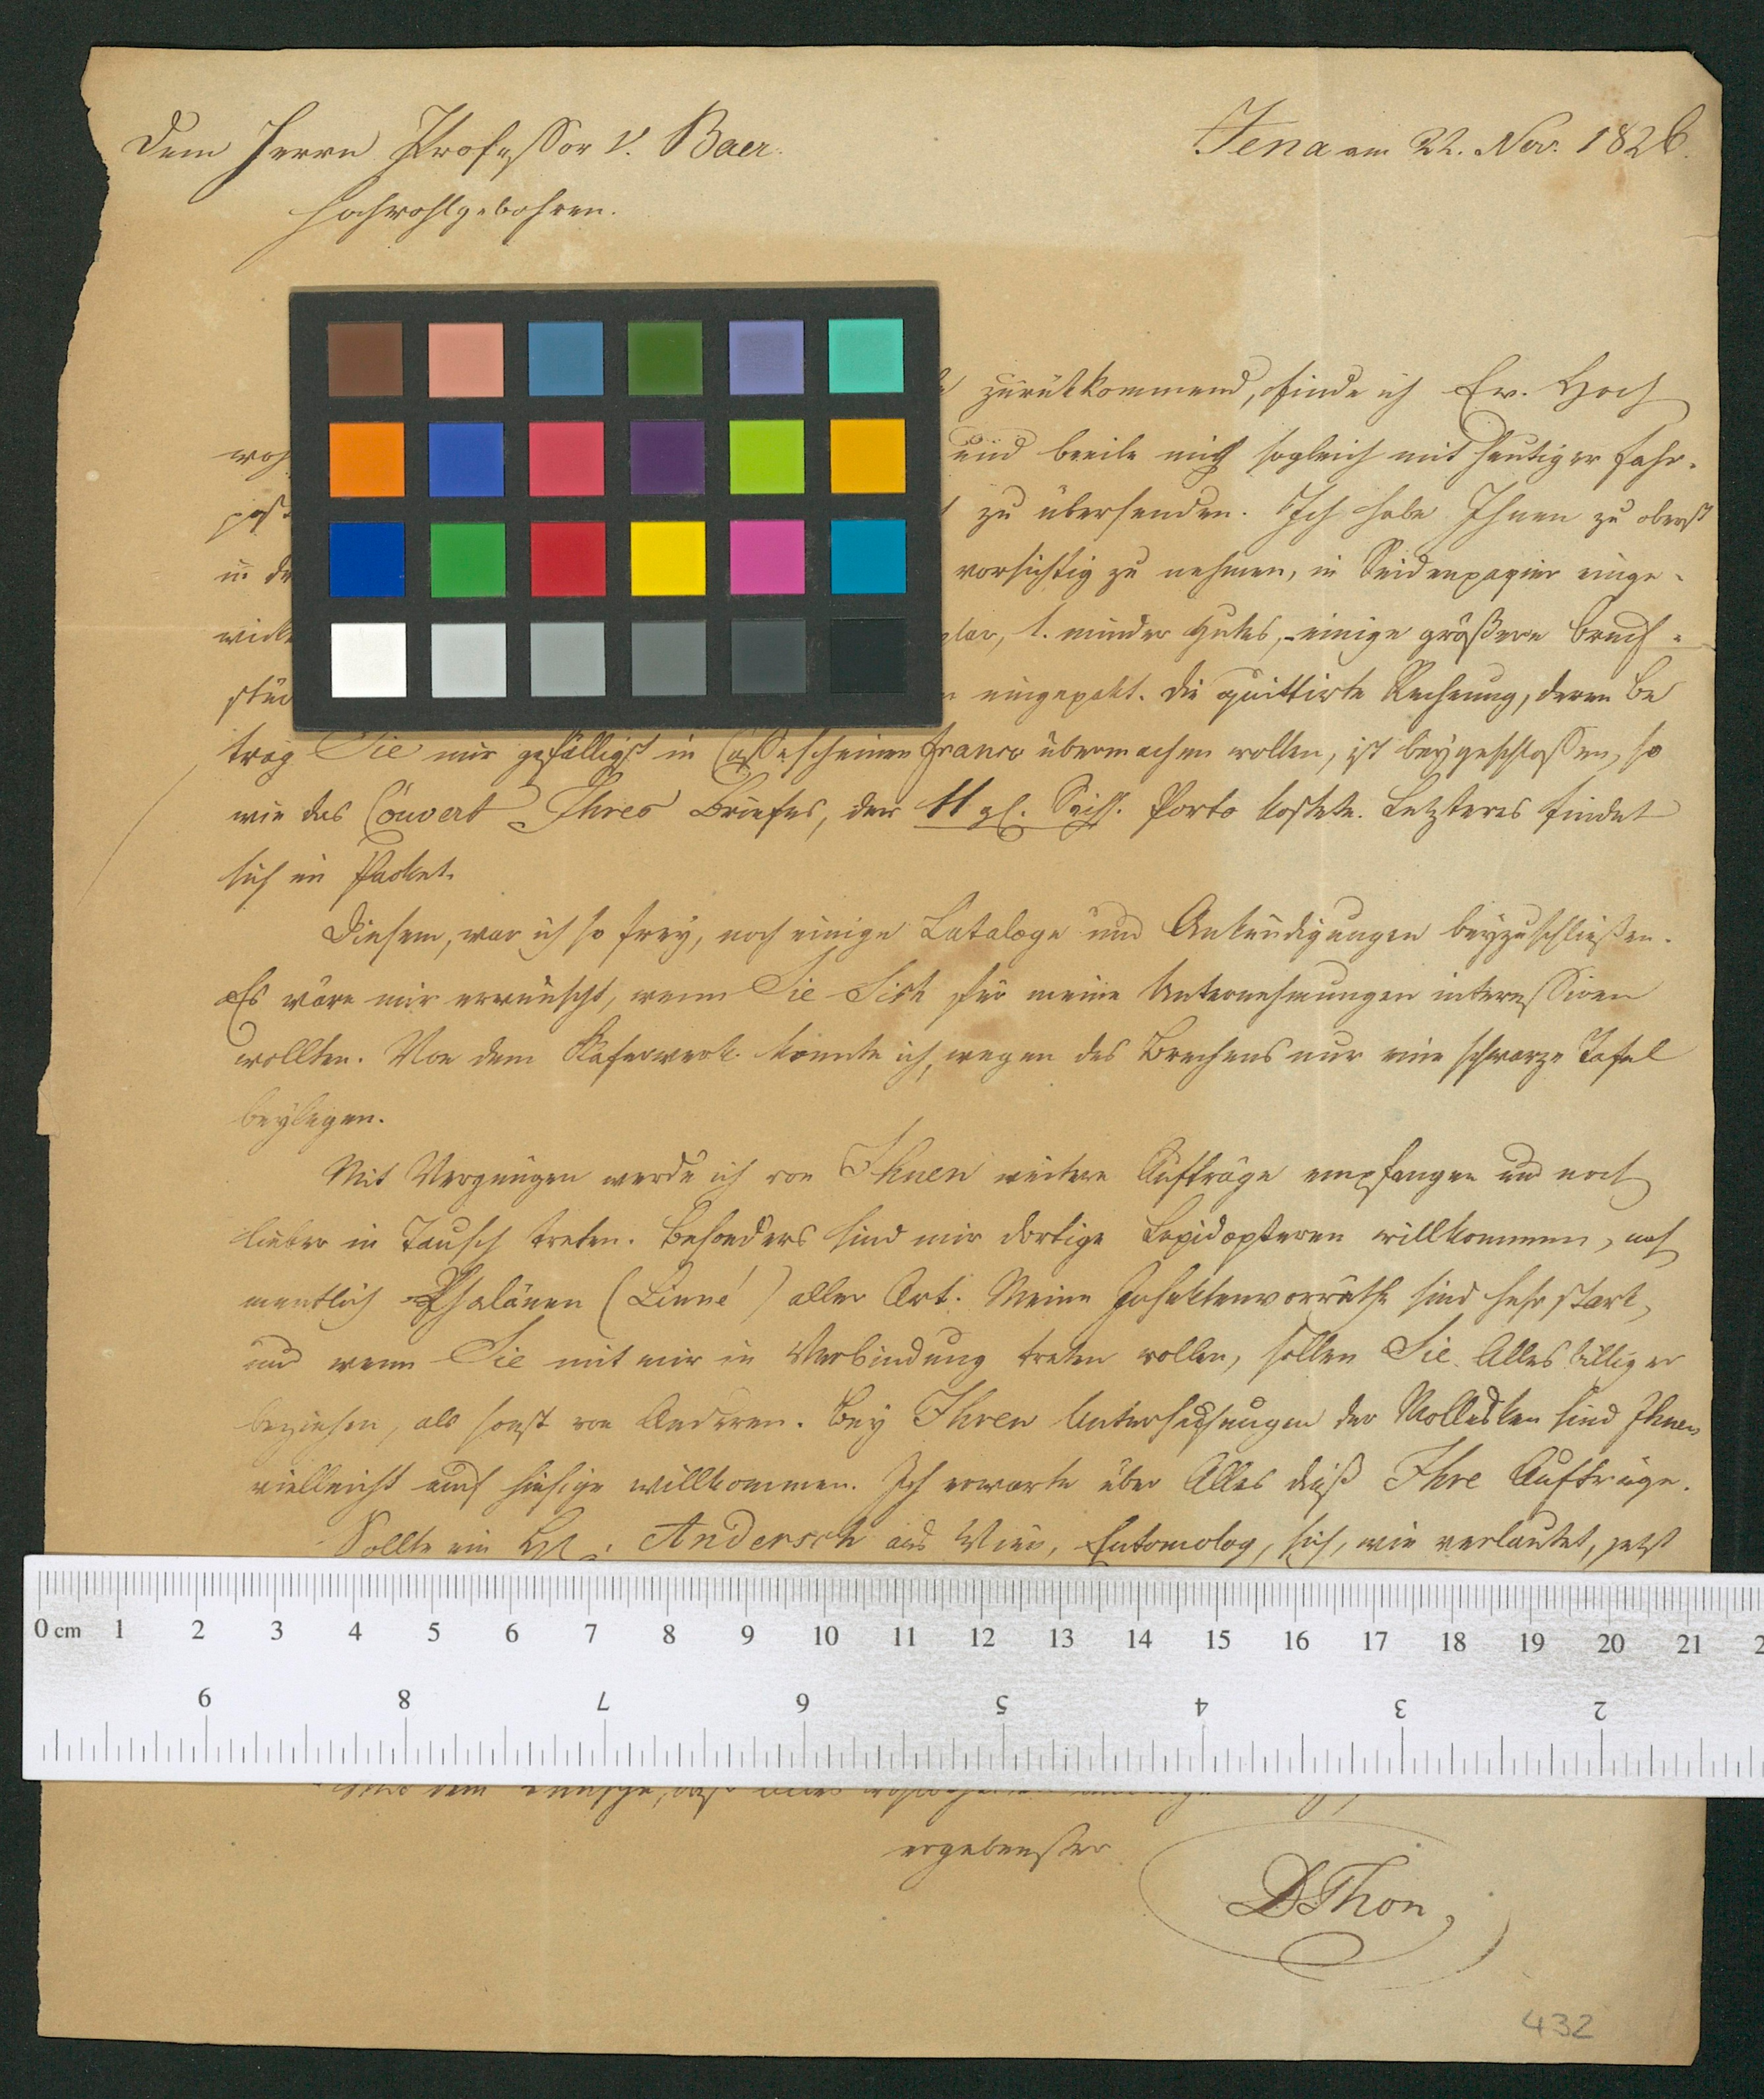 Dem Herrn Professor v. Baer.
Jena am 22. Nov. 1826.
Hochwohlgebohren.
zurükkommend, finde ich Ew. Hoch
und beeile mich sogleich mit heutiger Fahr-
zu übersenden. Ich habe Ihnen zu oberst
vorsichtig zu nehmen, in Seidenpapier einge-
1. minder gutes, einige größere Bruch-
eingepakt. Die quittirte Rechnung, deren Be
trag Sie mir gefälligst in Cassescheinen franco übermachen wollen, ist beygeschlossen, so
wie das Couvert Ihres Briefes, der 11 gl. Porto kostete. Letzteres findet
sich im Packet.
Diesem, war ich so frey, noch einige Cataloge und Ankündigungen beyzuschließen.
Es wäre mir erwünscht, wenn Sie Sich für meine Unternehmungen interessiren
wollten. Von dem Käferwerk konnte ich, wegen des Brechens nur eine schwarze Tafel
beylegen.
Mit Vergnügen werde ich von Ihnen weitere Aufträge empfangen und noch
lieber in Tausch treten. Besonders sind mir dortige Lepidopteren willkommen, nah
mentlich Phalänen (Linné) aller Art. Meine Insektenvorräthe sind sehr stark,
und wenn Sie mit mir in Verbindung treten wollen, sollen Sie Alles billiger
beziehen, als sonst von Anderen. Bey Ihren Untersuchungen der Mollusken sind Ihnen
vielleicht auch hiesige willkommen. Ich erwarte über Alles dieß Ihre Aufträge.
Sollte ein Andersch aus Wien, Entomolog, sich, wie verlautet, jetzt
0 cm 1 2 3 4 5 6 7 8 9 10 11 12 13 14 15 16 17 18 19 20 21
9 8 7 6 5 4 3 2
ergebenster
DThon
432